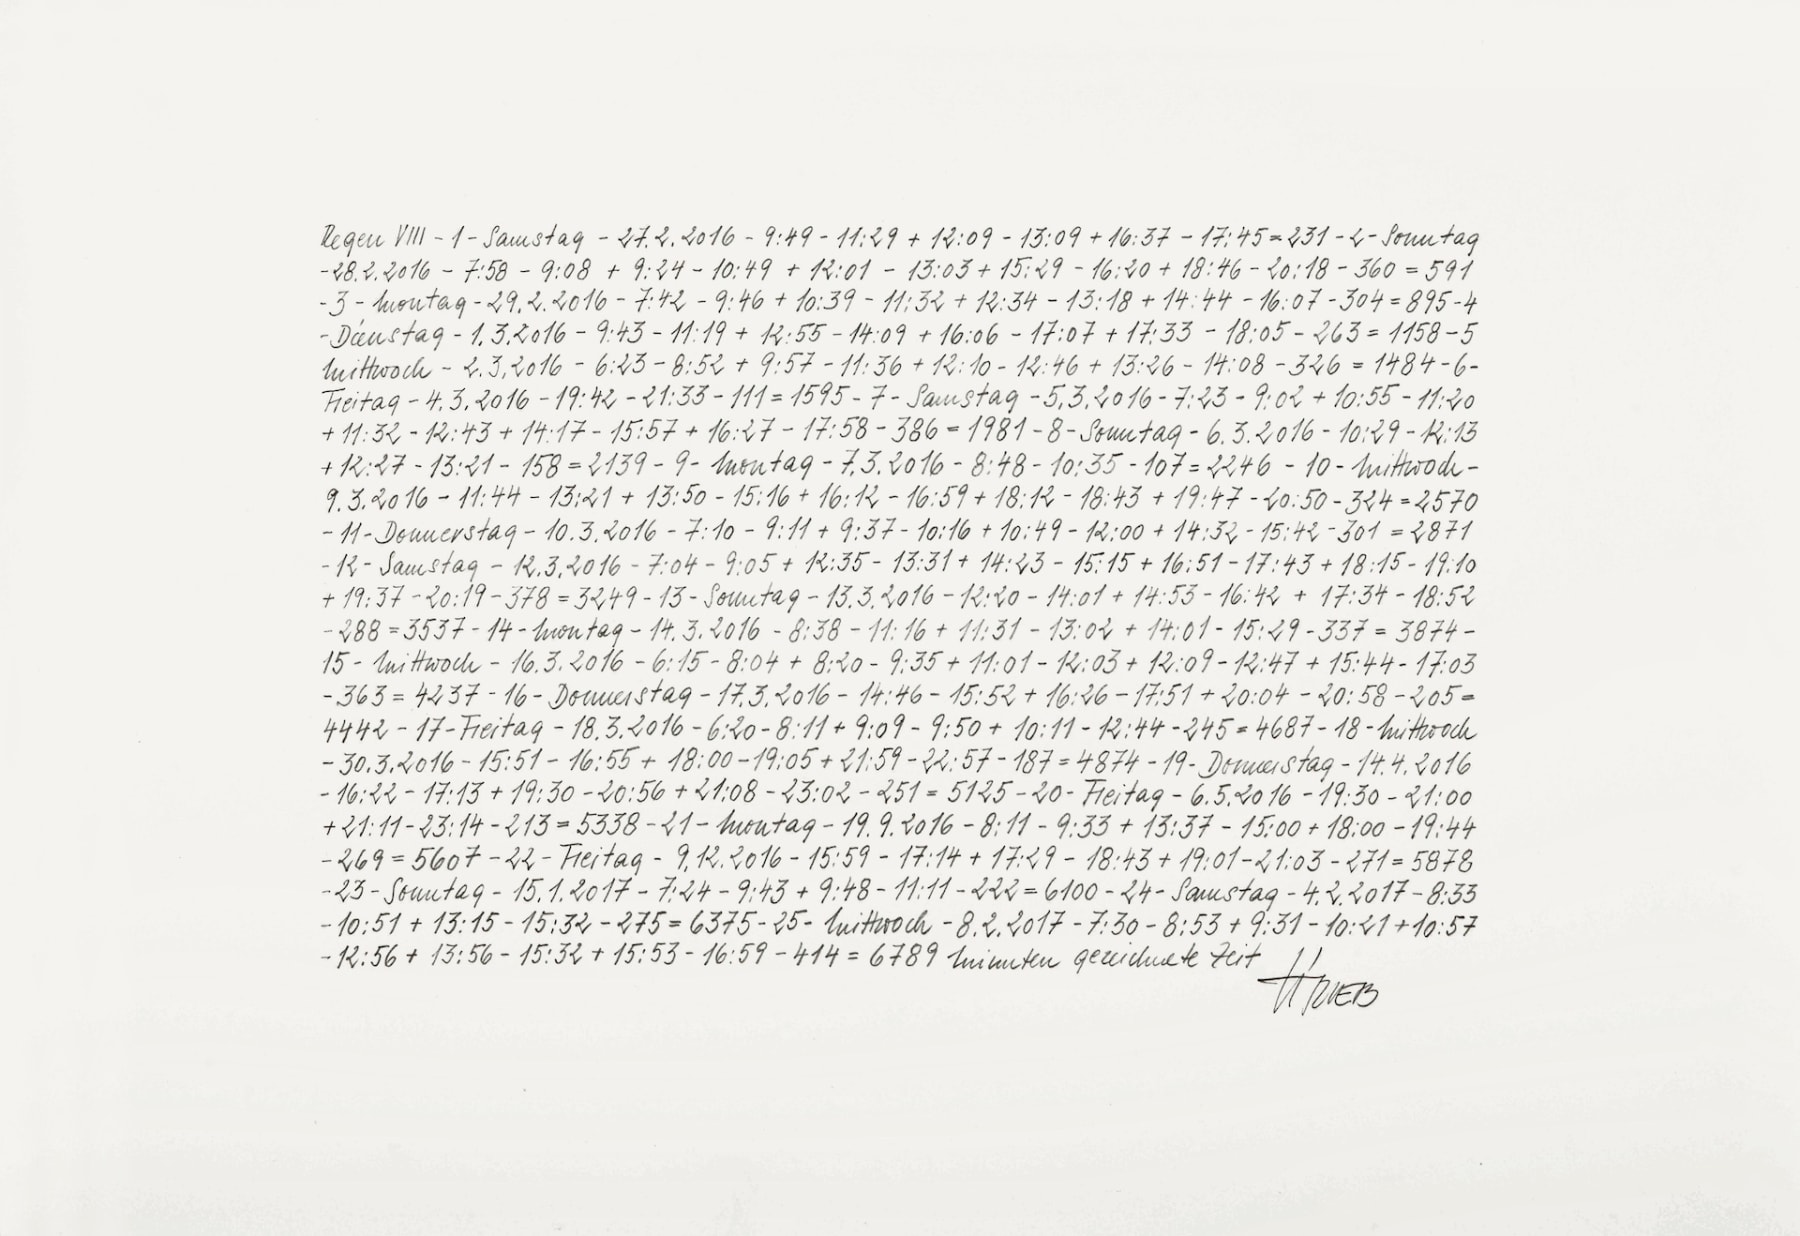 Regen VIII - 1 - Samstag - 27.2.2016 - 9:49 - 11:29 + 12:09 - 13:09 + 16:37 - 17:45 = 231 - 2 - Sonntag
- 28.2.2016 - 7:58 - 9:08 + 9:24 - 10:49 + 12:01 - 13:03 + 15:29 - 16:20 + 18:46 - 20:18 - 360 = 591
- 3 - Montag - 29.2.2016 - 7:42 - 9:46 + 10:39 - 11:32 + 12:34 - 13:18 + 14:44 - 16:07 - 304 = 895 - 4
- Dienstag - 1.3.2016 - 9:43 - 11:19 + 12:55 - 14:09 + 16:06 - 17:07 + 17:33 - 18:05 - 263 = 1158 - 5
Mittwoch - 2.3.2016 - 6:23 - 8:52 + 9:57 - 11:36 + 12:10 - 12:46 + 13:26 - 14:08 - 326 = 1484 - 6 -
Freitag - 4.3.2016 - 19:42 - 21:33 - 111 = 1595 - 7 - Samstag - 5.3.2016 - 7:23 - 9:02 + 10:55 - 11:20
+ 11:32 - 12:43 + 14:17 - 15:57 + 16:27 - 17:58 - 386 = 1981 - 8 - Sonntag - 6.3.2016 - 10:29 - 12:13
+ 12:27 - 13:21 - 158 = 2139 - 9 - Montag - 7.3.2016 - 8:48 - 10:35 - 107 = 2246 - 10 - Mittwoch -
9.3.2016 - 11:44 - 13:21 + 13:50 - 15:16 + 16:12 - 16:59 + 18:12 - 18:43 + 19:47 - 20:50 - 324 = 2570
- 11 - Donnerstag - 10.3.2016 - 7:10 - 9:11 + 9:37 - 10:16 + 10:49 - 12:00 + 14:32 - 15:42 - 301 = 2871
- 12 - Samstag - 12.3.2016 - 7:04 - 9:05 + 12:35 - 13:31 + 14:23 - 15:15 + 16:51 - 17:43 + 18:15 - 19:10
+ 19:37 - 20:19 - 378 = 3249 - 13 - Sonntag - 13.3.2016 - 12:20 - 14:01 + 14:53 - 16:42 + 17:34 - 18:52
- 288 = 3537 - 14 - Montag - 14.3.2016 - 8:38 - 11:16 + 11:31 - 13:02 + 14:01 - 15:29 - 337 = 3874 -
15 - Mittwoch - 16.3.2016 - 6:15 - 8:04 + 8:20 - 9:35 + 11:01 - 12:03 + 12:09 - 12:47 + 15:44 - 17:03
- 363 = 4237 - 16 - Donnerstag - 17.3.2016 - 14:46 - 15:52 + 16:26 - 17:51 + 20:04 - 20:58 - 205 =
4442 - 17 - Freitag - 18.3.2016 - 6:20 - 8:11 + 9:09 - 9:50 + 10:11 - 12:44 - 245 = 4687 - 18 - Mittwoch
- 30.3.2016 - 15:51 - 16:55 + 18:00 - 19:05 + 21:59 - 22:57 - 187 = 4874 - 19 - Donnerstag - 14.4.2016
- 16:22 - 17:13 + 19:30 - 20:56 + 21:08 - 23:02 - 251 = 5125 - 20 - Freitag - 6.5.2016 - 19:30 - 21:00
+ 21:11 - 23:14 - 213 = 5338 - 21 - Montag - 19.9.2016 - 8:11 - 9:33 + 13:37 - 15:00 + 18:00 - 19:44
- 269 = 5607 - 22 - Freitag - 9.12.2016 - 15:59 - 17:14 + 17:29 - 18:43 + 19:01 - 21:03 - 271 = 5878
- 23 - Sonntag - 15.1.2017 - 7:24 - 9:43 + 9:48 - 11:11 - 222 = 6100 - 24 - Samstag - 4.2.2017 - 8:33
- 10:51 + 13:15 - 15:32 - 275 = 6375 - 25 - Mittwoch - 8.2.2017 - 7:30 - 8:53 + 9:31 - 10:21 + 10:57
- 12:56 + 13:56 - 15:32 + 15:53 - 16:59 - 414 = 6789 Minuten gezeichnete Zeit